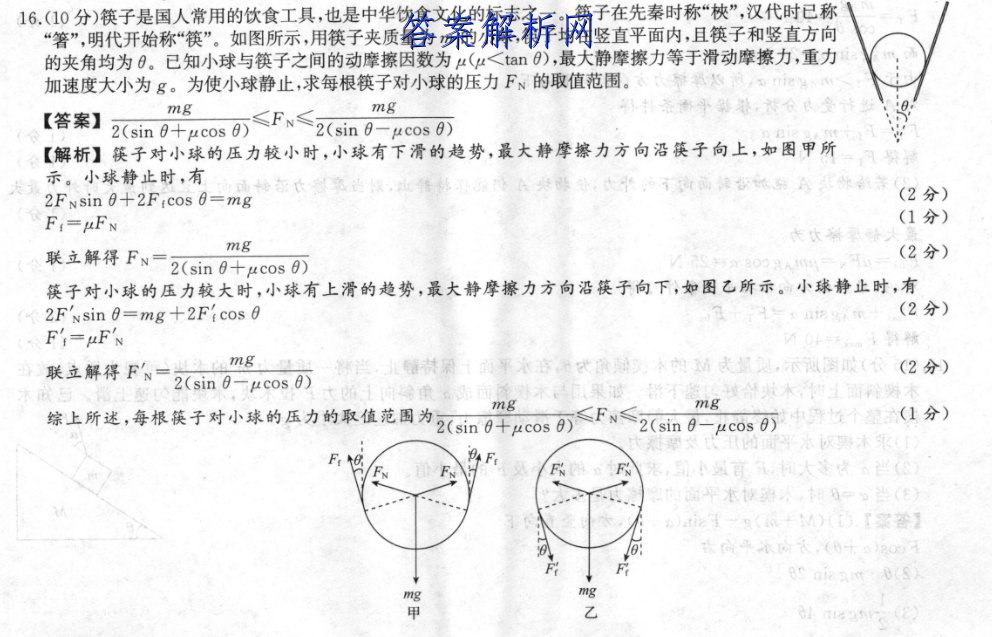 16.(10分)筷子是国人常用的饮食工具,也是中华饮食文化的标志之一。筷子在先秦时称“梜”,汉代时已称
“箸”,明代开始称“筷”。如图所示,用筷子夹质量为m的小球,筷子均在竖直平面内,且筷子和竖直方向
的夹角均为θ。已知小球与筷子之间的动摩擦因数为μ(μ<tan θ),最大静摩擦力等于滑动摩擦力,重力
加速度大小为g。为使小球静止,求每根筷子对小球的压力F_N的取值范围。
答案解析网
θ
【答案】mg/2(sin θ+μcos θ)≤F_N≤mg/2(sin θ-μcos θ)
【解析】筷子对小球的压力较小时,小球有下滑的趋势,最大静摩擦力方向沿筷子向上,如图甲所
示。小球静止时,有
2F_Nsin θ+2F_fcos θ=mg (2分)
F_f=μF_N (1分)
联立解得F_N=mg/2(sin θ+μcos θ) (2分)
筷子对小球的压力较大时,小球有上滑的趋势,最大静摩擦力方向沿筷子向下,如图乙所示。小球静止时,有
2F′_Nsin θ=mg+2F′_fcos θ (2分)
F′_f=μF′_N
联立解得F′_N=mg/2(sin θ-μcos θ) (2分)
综上所述,每根筷子对小球的压力的取值范围为mg/2(sin θ+μcos θ)≤F_N≤mg/2(sin θ-μcos θ) (1分)
F_f θ F_N F_N θ F_f
mg
甲
F′_N F′_N
θ θ
F′_f F′_f
mg
乙